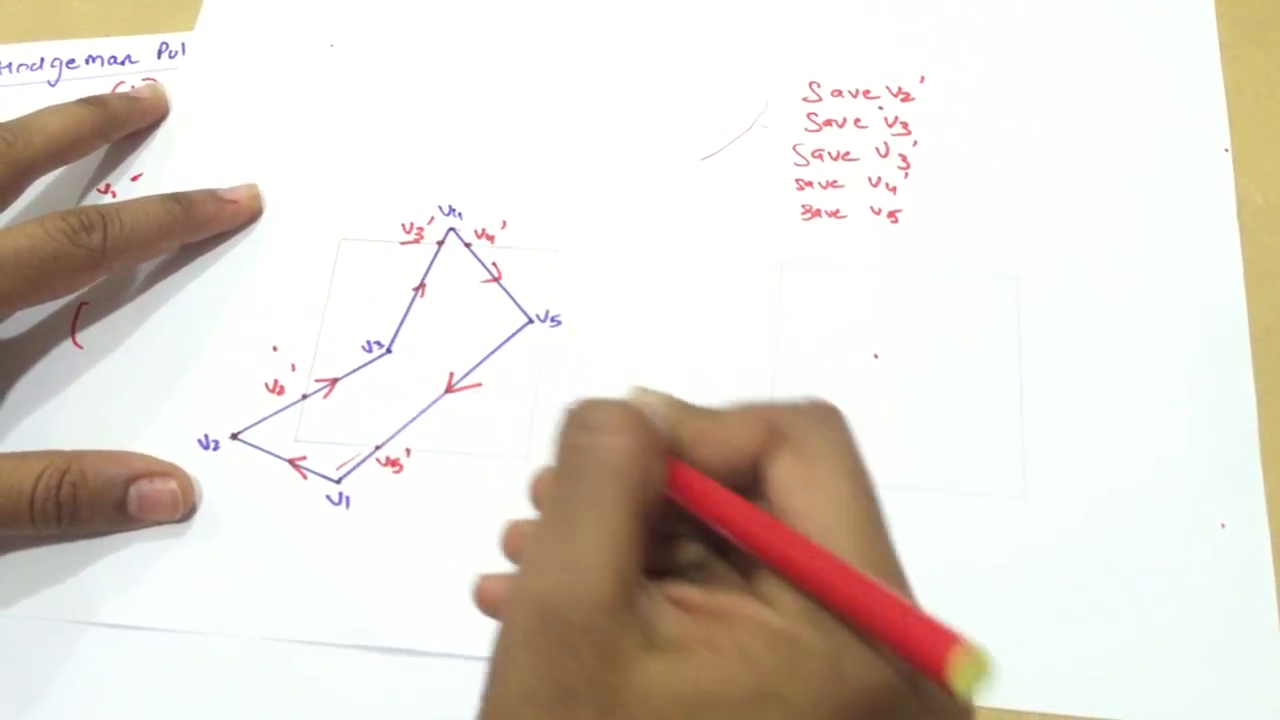 Hodgeman Pol
v1'
Save v2'
Save v3
Save v3'
save v4'
save v5
v4
v3'
v4'
v5
v3
v2'
v2
v5'
v1